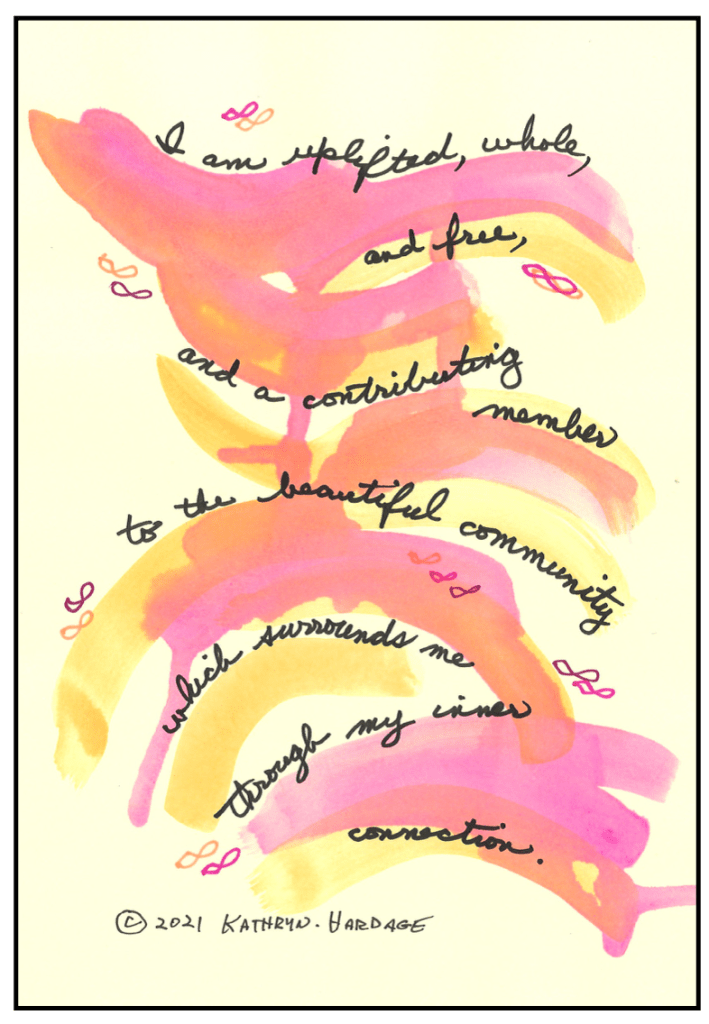 I am uplifted, whole,
and free,
and a contributing
member
to the beautiful community
which surrounds me
through my inner
connection.
© 2021 KATHRYN. HARDAGE